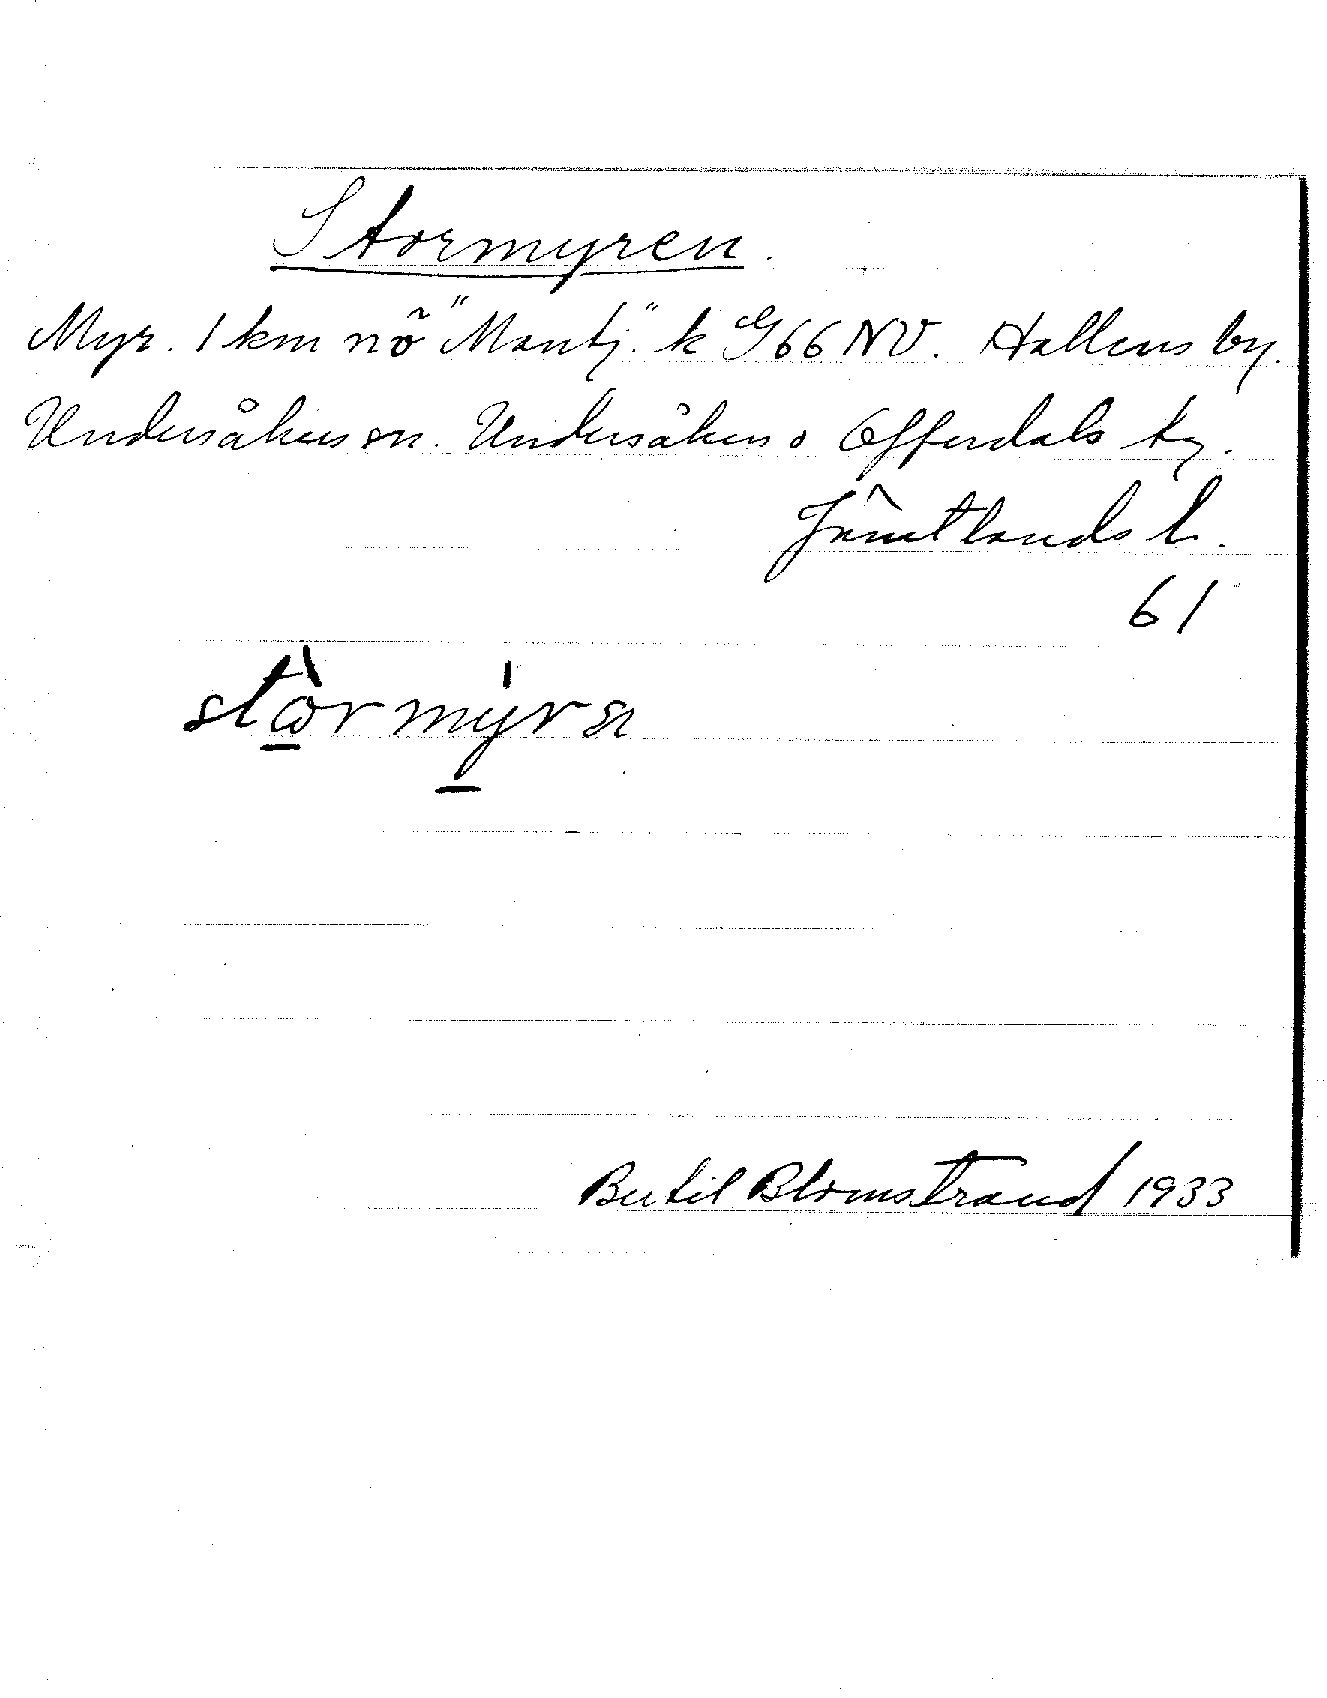 Stormyren.
Myr. 1 km nö "Mantj." k G66 NV. Hallens by.
Undersåkers sn. Undersåkers o Offerdals tg.
Jämtlands l.
61
Bertil Blomstrand 1933